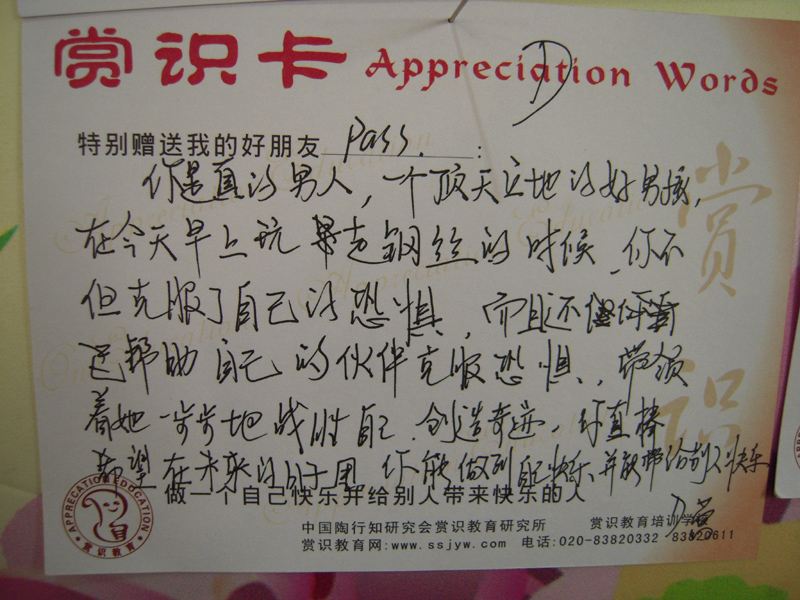 赏识卡 Appreciation Words
特别赠送我的好朋友 Pass. :
你是真的男人，一个顶天立地的好男孩，
在今天早上玩 走钢丝的时候、你不
但克服了自己的恐惧，而且还
帮助自己的伙伴克服恐惧、带领
着她一步步地战胜自己、创造奇迹，你真棒
希望在未来的日子里 你能做到自己快乐并能带给别人快乐
做一个自己快乐并给别人带来快乐的人
中国陶行知研究会赏识教育研究所 赏识教育培训学
赏识教育网:www.ssjyw.com 电话:020-83820332 83820611
APPRECATION EDUCATION
赏识教育
赏识